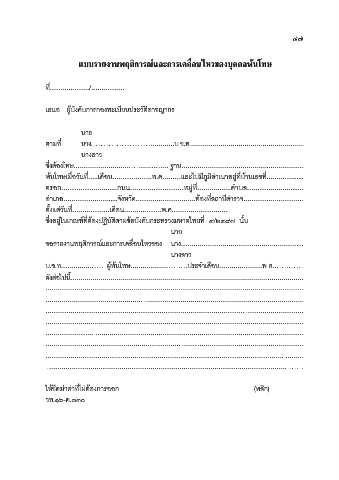 ๔๗
แบบรายงานพฤติการณ์และการเคลื่อนไหวของบุคคลพ้นโทษ
ที่...................../.................
เสนอ ผู้บังคับการกองทะเบียนประวัติอาชญากร
นาย
ตามที่ นาง.............................................น.ช.ท.............................................
นางสาว
ซึ่งต้องโทษ.................................................ฐาน.............................................
พ้นโทษเมื่อวันที่.....เดือน.....................พ.ศ..........และมีภูมิลำเนาอยู่ที่บ้านเลขที่....................
ตรอก..............................ถนน.............................หมู่ที่..................ตำบล..............................
อำเภอ.............................จังหวัด................................ท้องที่สถานีตำรวจ................................
ตั้งแต่วันที่....................เดือน....................พ.ศ..............................
ซึ่งอยู่ในเกณฑ์ที่ต้องปฏิบัติตามข้อบังคับกระทรวงมหาดไทยที่ นั้น
นาย
ขอรายงานพฤติการณ์และการเคลื่อนไหวของ นาง.................................................................
นางสาว
น.ช.ท....................... ผู้พ้นโทษ..............................ประจำเดือน.......................พ.ศ................
ดังต่อไปนี้..............................................................................................................
ให้ขีดฆ่าคำที่ไม่ต้องการออก (พลิก)
วท.๑๖-ต.๑๓๐